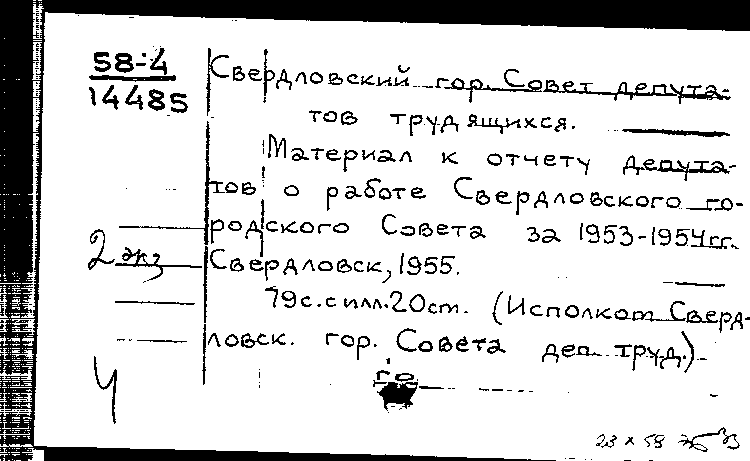 58-4
14485
Свердловский гор. Совет депута-
тов трудящихся.
Материал к отчету депута-
тов о работе Свердловского го-
родского Совета за 1953-1954гг.
Свердловск, 1955.
79с.с илл. 20cm. (Исполком Сверд-
ловск. гор. Совета деп. труд.)-
2 экз
Ч
го
23 x 58